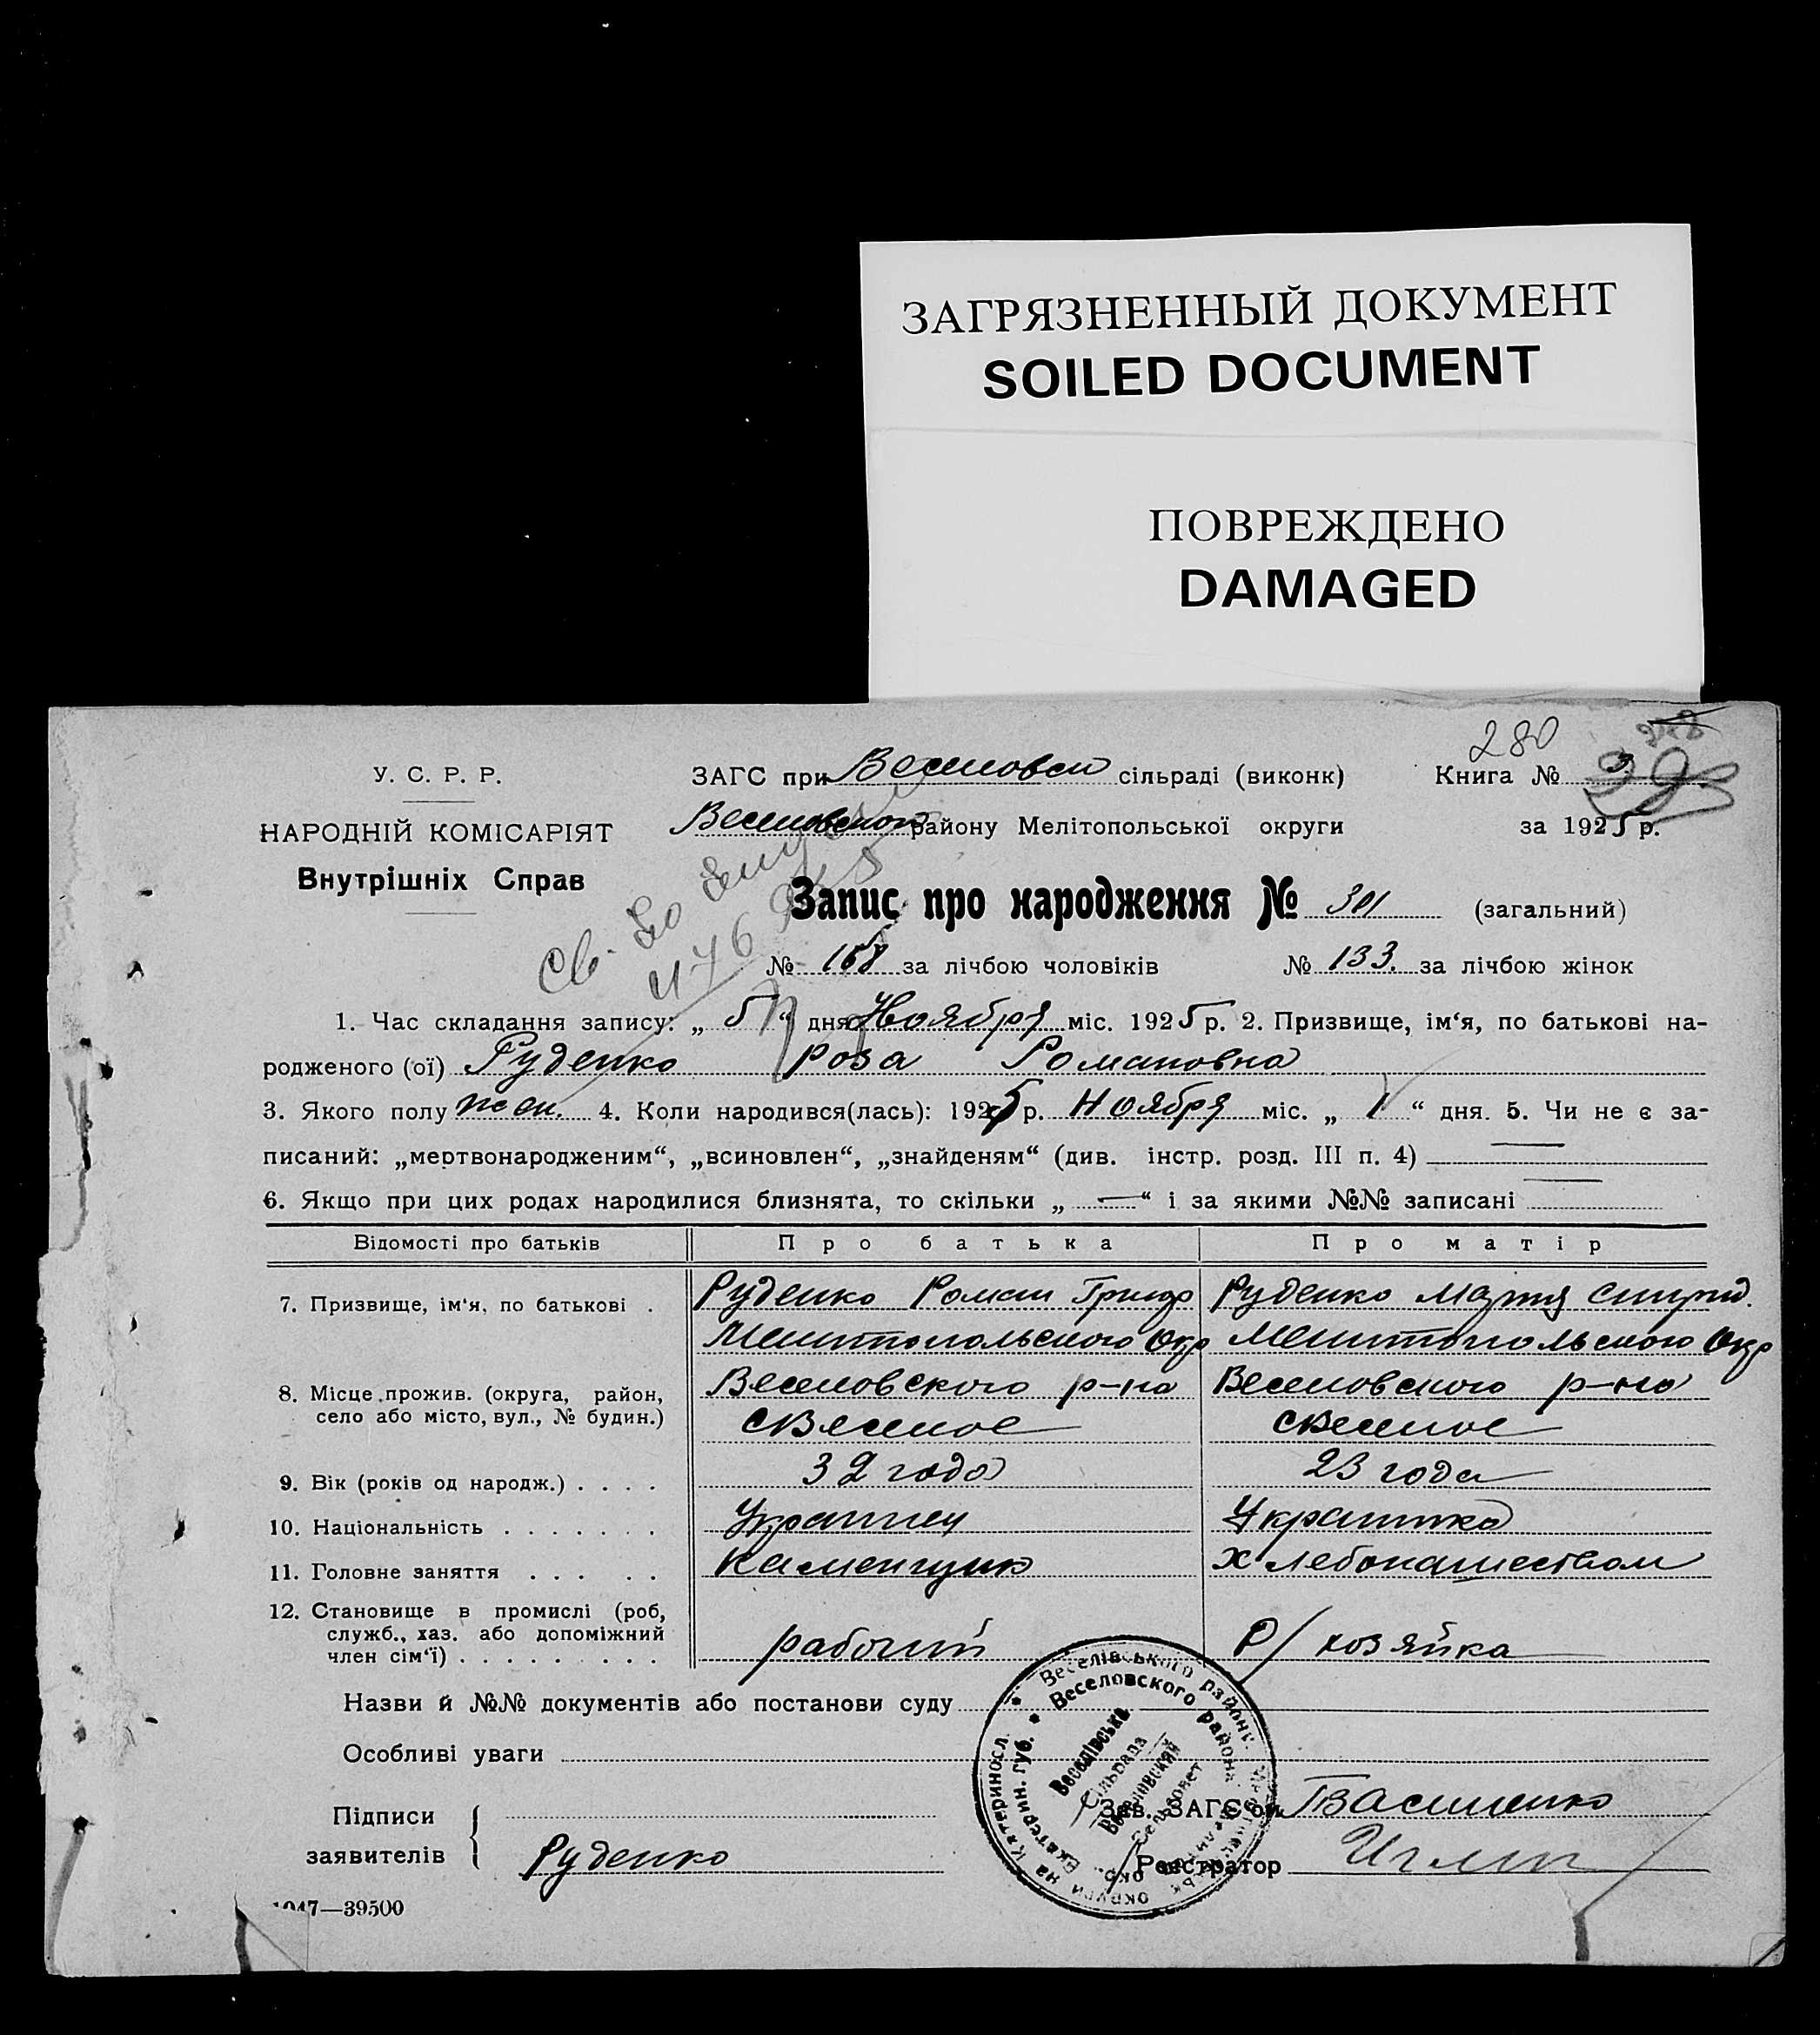 ЗАГРЯЗНЕННЫЙ ДОКУМЕНТ
SOILED DOCUMENT
ПОВРЕЖДЕНО
DAMAGED
280
У. С. Р. Р.
НАРОДНІЙ КОМІСАРІЯТ
Внутрішніх Справ
ЗАГС при Веселовск сільраді (виконк) Книга №
Веселовского району Мелітопольської округи за 1925 р.
Запис про народження № 301 (загальний)
№ 168 за лічбою чоловіків № 133. за лічбою жінок
1. Час складання запису: „ 5 “ дня Ноября міс. 1925 р. 2. Призвище, ім'я, по батькові на-
родженого (ої) Руденко Роза Романовна
3. Якого полу жен. 4. Коли народився(лась): 1925 р. Ноября міс. „ 1 “ дня. 5. Чи не є за-
писаний: „мертвонародженим“, „всиновлен“, „знайденям“ (див. інстр. розд. III п. 4) —
6. Якщо при цих родах народилися близнята, то скільки „ — “ і за якими №№ записані —
Відомості про батьків Про батька Про матір
7. Призвище, ім'я, по батькові . Руденко Роман Григор Руденко Мария Спирид.
Мелитопольского Окр Мелитопольского Окр
8. Місце прожив. (округа, район, село або місто, вул., № будин.) Веселовского р-на Веселовского р-на
с Веселое с Веселое
9. Вік (років од народж.) . . . . 32 года 23 года
10. Національність . . . . . . . Украинец Украинка
11. Головне заняття . . . . . Каменщик Хлебопашеством
12. Становище в промислі (роб,
служб., хаз. або допоміжний
член сім'ї) . . . . . . . . . рабочий Р/ хозяйка
Назви й №№ документів або постанови суду
Особливі уваги
Веселівського район.
Веселовского района
Катериносл.
Екатерин. губ.
Веселівська
Сільрада
Веселовский
Сельсовет
Підписи
заявителів
Руденко
Зав. ЗАГС'ом Василенко
Реєстратор
1047—39500